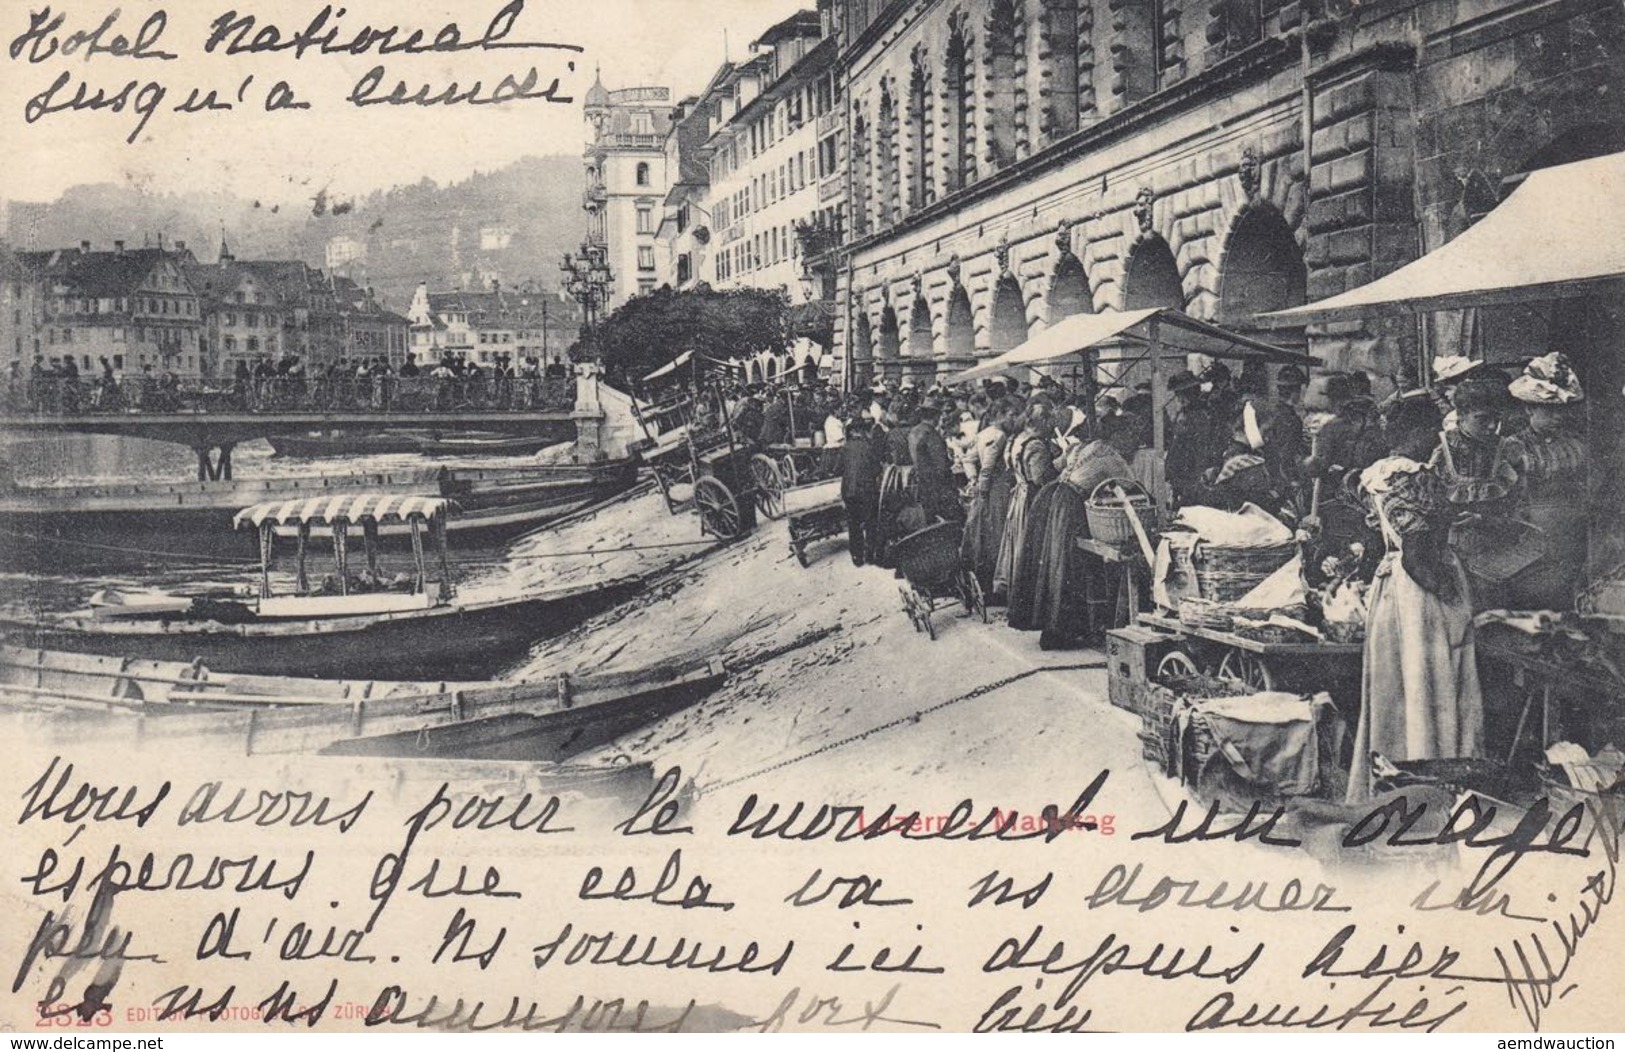 Hotel National
Jusqu'a lundi
Luzern - Markttag
Nous avons pour le moment un orage
ésperons que cela va ns donner un
peu d'air. Ns sommes ici depuis hier
et ns ns amusons fort bien Amitiés
2323 EDITION PHOTOGLOB Co. ZÜRICH
www.delcampe.net
aemdwauction